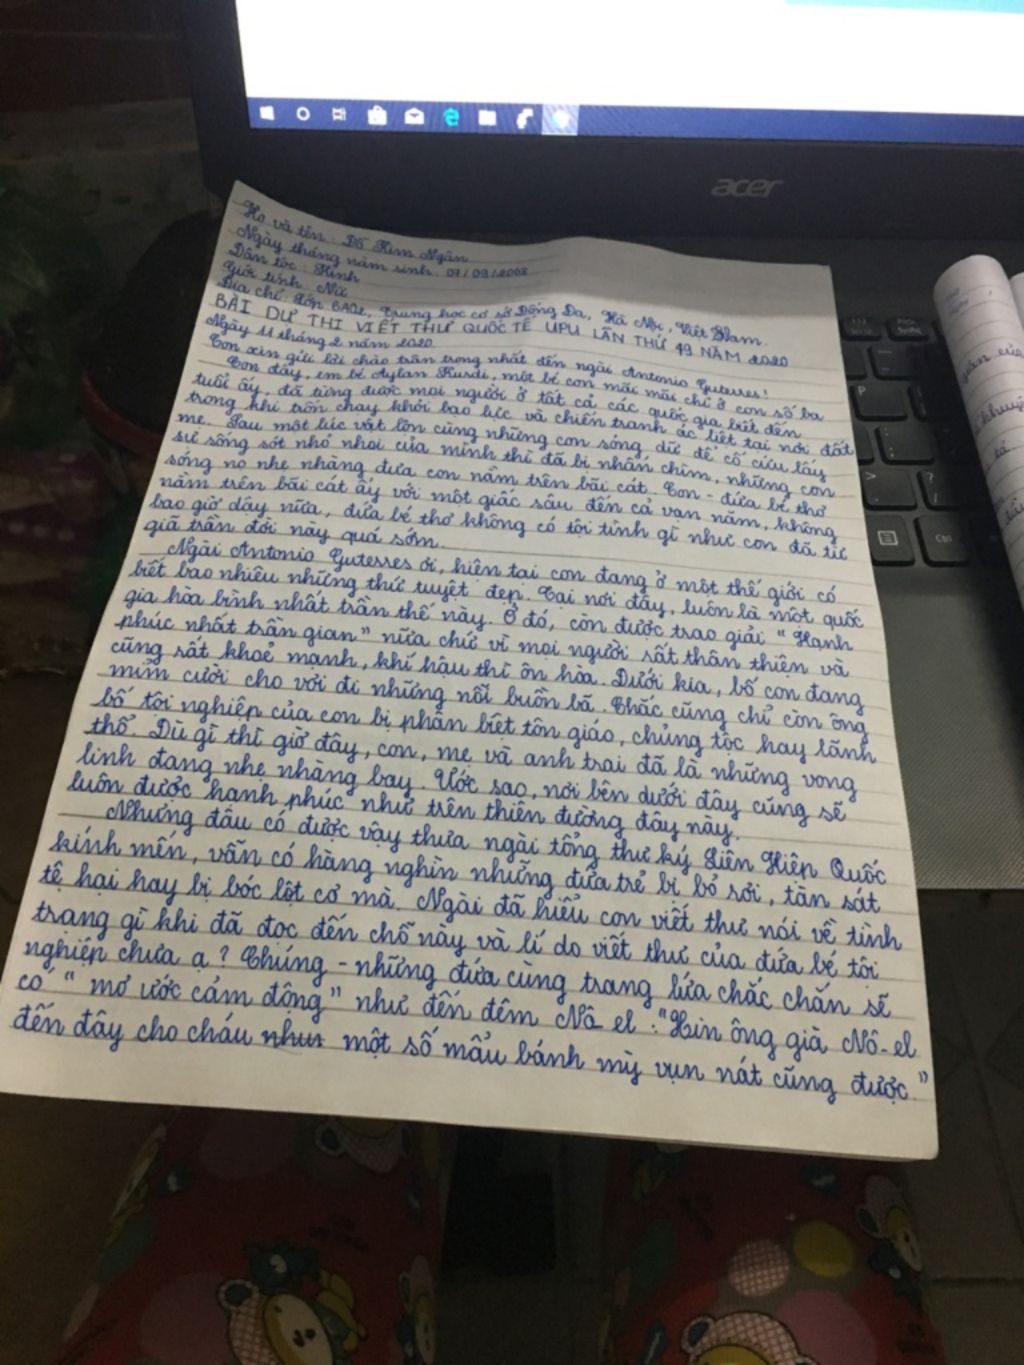 acer
Họ và tên : Đỗ Kim Ngân
Ngày tháng năm sinh : 07/09/2008
Dân tộc : Kinh
Giới tính : Nữ
Địa chỉ : Lớp 6A02, Trung học cơ sở Đống Đa, Hà Nội, Việt Nam.
BÀI DỰ THI VIẾT THƯ QUỐC TẾ UPU LẦN THỨ 49 NĂM 2020
Ngày 11 tháng 2 năm 2020
Con xin gửi lời chào trân trọng nhất đến ngài Antonio Guterres!
Con đây, em bé Aylan Kurdi, một bé con mãi mãi chỉ ở con số ba
tuổi ấy, đã từng được mọi người ở tất cả các quốc gia biết đến
trong khi trốn chạy khỏi bạo lực và chiến tranh ác liệt tại nơi đất
mẹ. Sau một lúc vật lộn cùng những con sóng dữ để cố cứu lấy
sự sống sót nhỏ nhoi của mình thì đã bị nhấn chìm, những con
sóng nọ nhẹ nhàng đưa con nằm trên bãi cát. Con - đứa bé thơ
nằm trên bãi cát ấy với một giấc sâu đến cả vạn năm, không
bao giờ dậy nữa, đứa bé thơ không có tội tình gì như con đã từ
giã trần đời này quá sớm.
Ngài Antonio Guterres ơi, hiện tại con đang ở một thế giới có
biết bao nhiêu những thứ tuyệt đẹp. Tại nơi đây, luôn là một quốc
gia hòa bình nhất trần thế này. Ở đó, còn được trao giải "Hạnh
phúc nhất trần gian" nữa chứ vì mọi người rất thân thiện và
cũng rất khoẻ mạnh, khí hậu thì ôn hòa. Dưới kia, bố con đang
mỉm cười cho vơi đi những nỗi buồn bã. Chắc cũng chỉ còn ông
bố tội nghiệp của con bị phân biệt tôn giáo, chủng tộc hay lãnh
thổ. Dù gì thì giờ đây, con, mẹ và anh trai đã là những vong
linh đang nhẹ nhàng bay. Ước sao, nơi bên dưới đây cũng sẽ
luôn được hạnh phúc như trên thiên đường đây này.
Nhưng đâu có được vậy thưa ngài tổng thư ký Liên Hiệp Quốc
kính mến, vẫn có hàng nghìn những đứa trẻ bị bỏ rơi, tàn sát
tệ hại hay bị bóc lột cơ mà. Ngài đã hiểu con viết thư nói về tình
trạng gì khi đã đọc đến chỗ này và lí do viết thư của đứa bé tội
nghiệp chưa ạ? Chúng - những đứa cùng trang lứa chắc chắn sẽ
có "mơ ước cảm động" như đến đêm Nô-el : "Xin ông già Nô-el
đến đây cho cháu như một số mẩu bánh mỳ vụn nát cũng được."
P
>
?
/
Ctrl